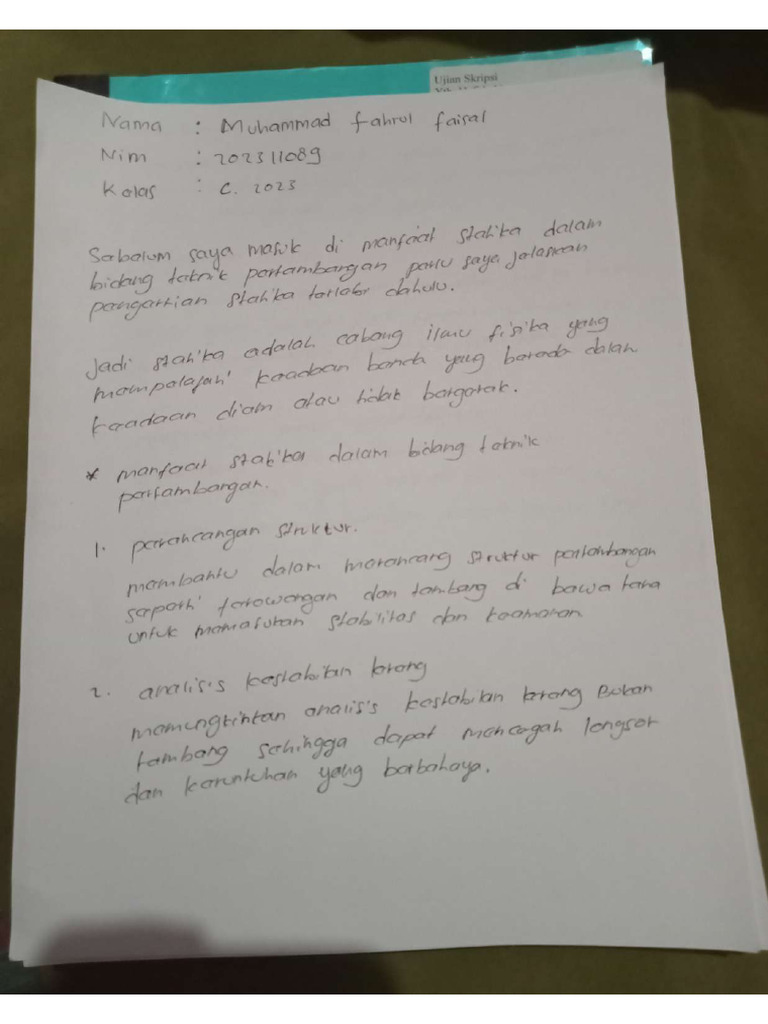 Ujian Skripsi
Nama : Muhammad fahrul faisal
Nim : 202311089
Kelas : C. 2023
Sebelum saya masuk di manfaat statika dalam
bidang teknik pertambangan perlu saya jelaskan
pengertian statika terlebi dahulu.
Jadi statika adalah cabang ilmu fisika yang
mempelajari keadaan benda yang berada dalam
keadaan diam atau tidak bergerak.
* manfaat statika dalam bidang teknik
pertambangan.
1. perancangan struktur.
membantu dalam merancang struktur pertambangan
seperti terowongan dan tambang di bawa tana
untuk memastikan stabilitas dan keamanan
2. analisis kestabilan lereng
memungkinkan analisis kestabilan lereng Bukan
tambang sehingga dapat mencegah longsor
dan keruntuhan yang berbahaya.